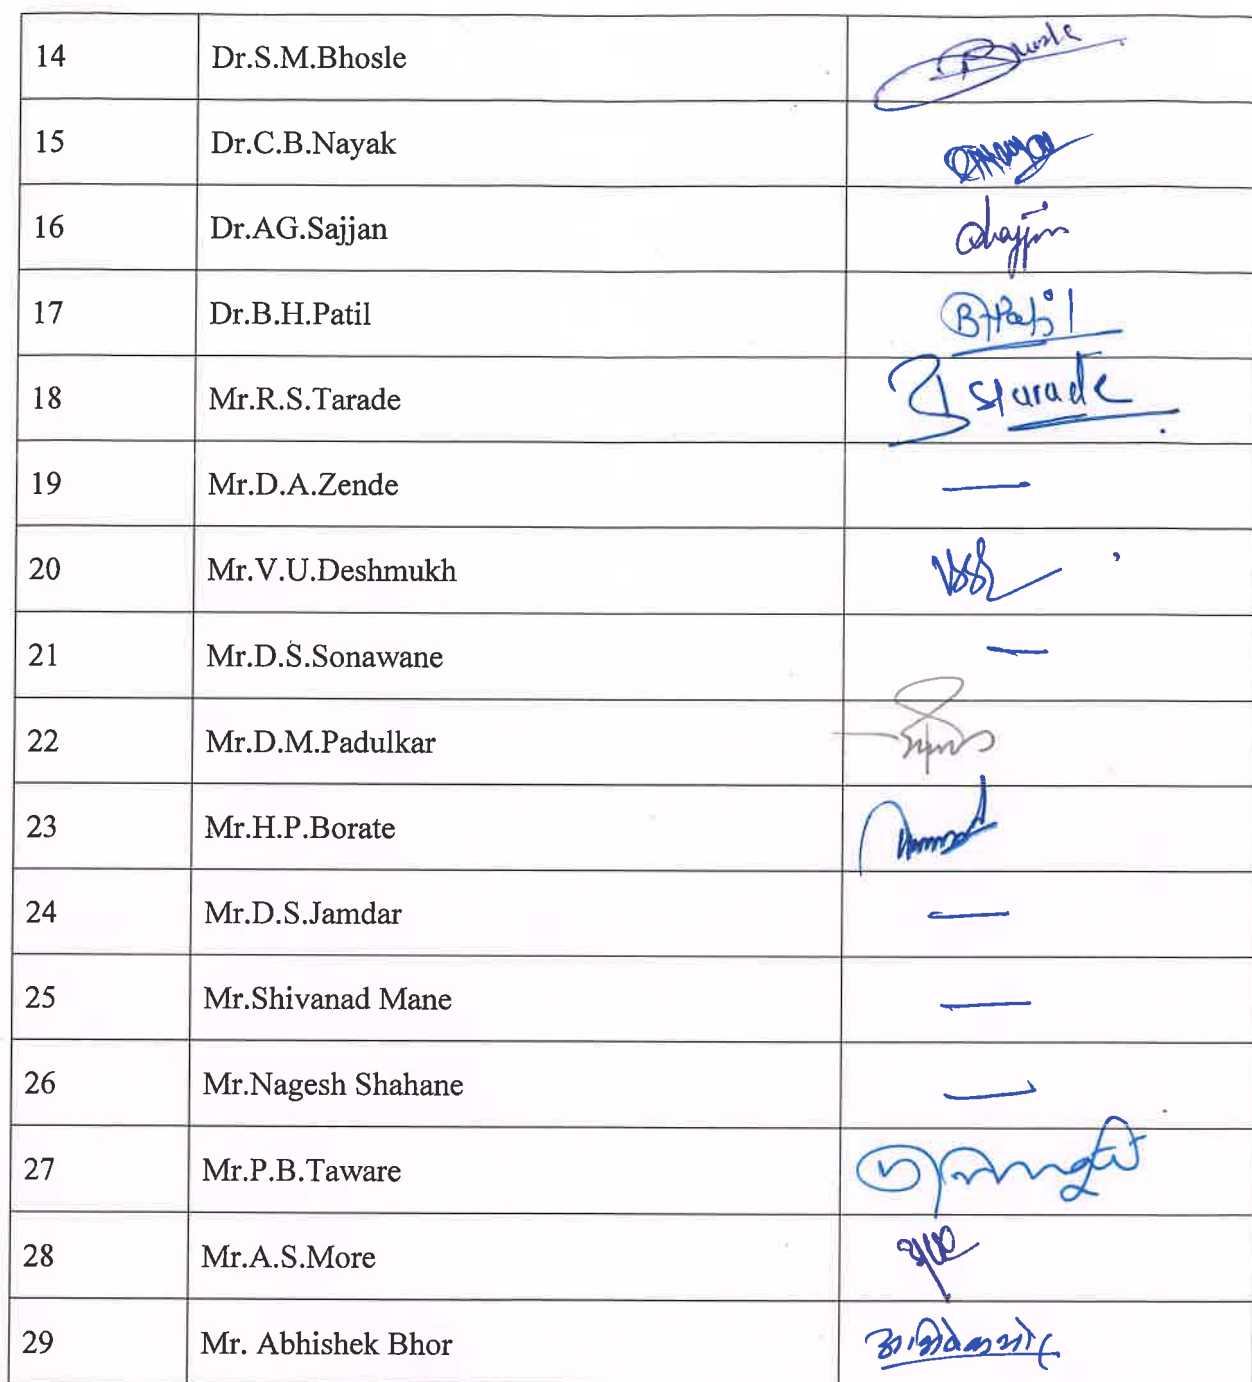 14 Dr.S.M.Bhosle Bhosle
15 Dr.C.B.Nayak
16 Dr.AG.Sajjan
17 Dr.B.H.Patil BHPatil
18 Mr.R.S.Tarade
19 Mr.D.A.Zende —
20 Mr.V.U.Deshmukh
21 Mr.D.S.Sonawane —
22 Mr.D.M.Padulkar
23 Mr.H.P.Borate
24 Mr.D.S.Jamdar —
25 Mr.Shivanad Mane —
26 Mr.Nagesh Shahane —
27 Mr.P.B.Taware
28 Mr.A.S.More
29 Mr. Abhishek Bhor